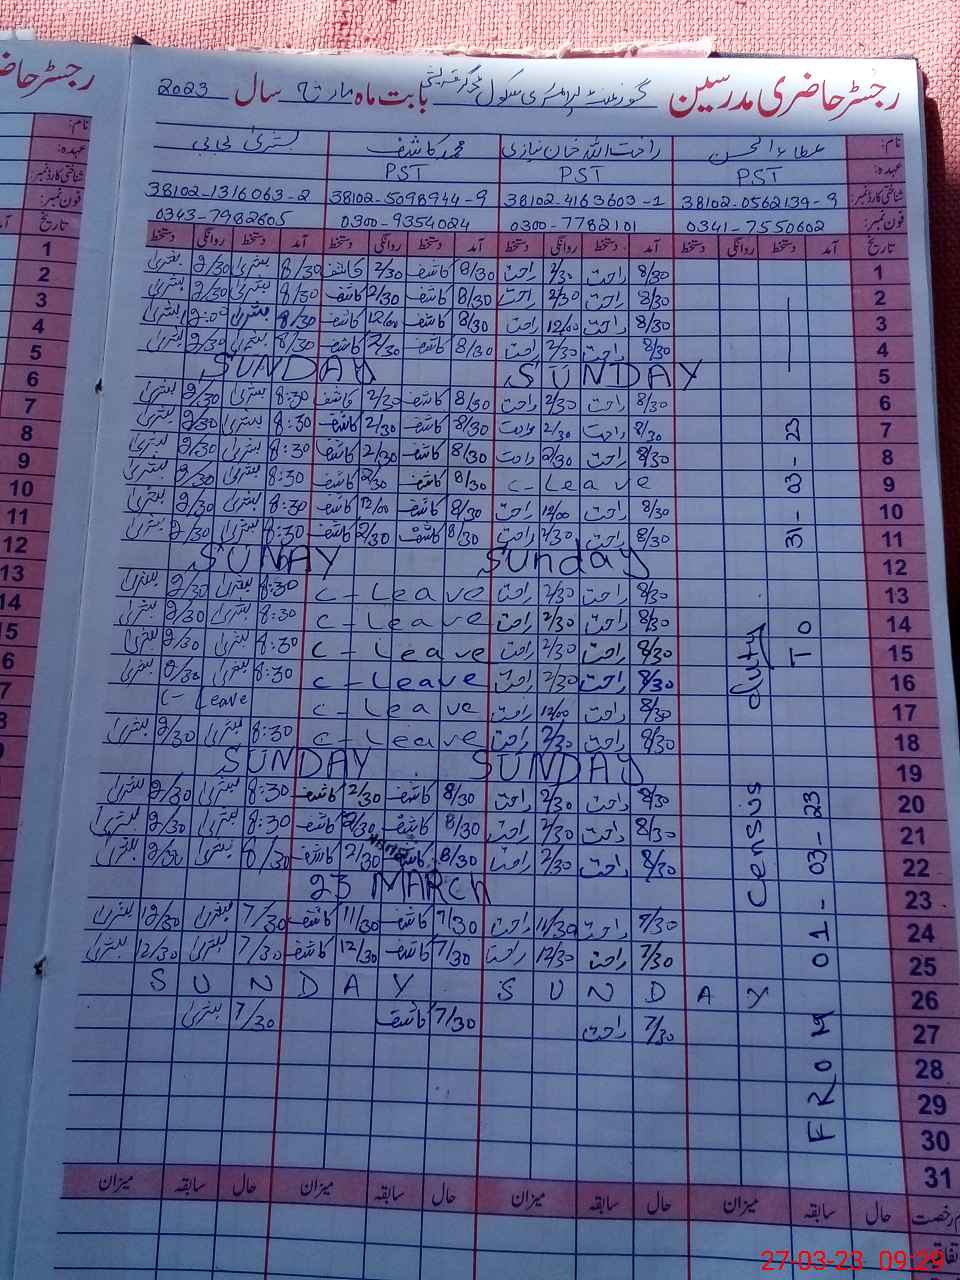 رجسٹر حاضری مدرسین گورنمنٹ پرائمری سکول بابت ماہ مارچ سال 2023
رجسٹر حاضری
نام: عطاء الحسن راحت اللہ خان نیازی محمد کاشف بشریٰ بی بی
عہدہ: PST PST PST
شناختی کارڈ نمبر: 38102-0562139-9 38102-4163603-1 38102-5098944-9 38102-1316063-2
فون نمبر: 0341-7550602 0300-7782101 0300-9354024 0343-7982605
تاریخ آمد دستخط روانگی دستخط آمد دستخط روانگی دستخط آمد دستخط روانگی دستخط آمد دستخط روانگی دستخط
1 8/30 راحت 2/30 راحت 8/30 کاشف 2/30 کاشف 8/30 بشریٰ 2/30 بشریٰ
2 8/30 راحت 2/30 راحت 8/30 کاشف 2/30 کاشف 8/30 بشریٰ 2/30 بشریٰ
3 8/30 راحت 12/00 راحت 8/30 کاشف 12/00 کاشف 8/30 بشریٰ 12:00 بشریٰ
4 8/30 راحت 2/30 راحت 8/30 کاشف 2/30 کاشف 8/30 بشریٰ 2/30 بشریٰ
5 SUNDAY SUNDAY
6 8/30 راحت 2/30 راحت 8/30 کاشف 2/30 کاشف 8:30 بشریٰ 2/30 بشریٰ
7 8/30 راحت 2/30 راحت 8/30 کاشف 2/30 کاشف 8:30 بشریٰ 2/30 بشریٰ
8 8/30 راحت 2/30 راحت 8/30 کاشف 2/30 کاشف 8:30 بشریٰ 2/30 بشریٰ
9 C-Leave 8/30 کاشف 2/30 کاشف 8:30 بشریٰ 2/30 بشریٰ
10 8/30 راحت 12/00 راحت 8/30 کاشف 12/00 کاشف 8:30 بشریٰ 2/30 بشریٰ
11 8/30 راحت 2/30 راحت 8/30 کاشف 2/30 کاشف 8:30 بشریٰ 2/30 بشریٰ
12 Sunday SUNAY
13 8/30 راحت 2/30 راحت C-Leave 8:30 بشریٰ 2/30 بشریٰ
14 8/30 راحت 2/30 راحت C-Leave 8:30 بشریٰ 2/30 بشریٰ
15 8/30 راحت 2/30 راحت C-Leave 8:30 بشریٰ 2/30 بشریٰ
16 8/30 راحت 2/30 راحت C-Leave 8:30 بشریٰ 2/30 بشریٰ
17 8/30 راحت 12/00 راحت C-Leave C-Leave
18 8/30 راحت 2/30 راحت C-Leave 8:30 بشریٰ 2/30 بشریٰ
19 SUNDAY SUNDAY
20 8/30 راحت 2/30 راحت 8/30 کاشف 2/30 کاشف 8:30 بشریٰ 2/30 بشریٰ
21 8/30 راحت 2/30 راحت 8/30 کاشف 2/30 کاشف 8:30 بشریٰ 2/30 بشریٰ
22 8/30 راحت 2/30 راحت 8/30 کاشف 2/30 کاشف 8/30 بشریٰ 2/30 بشریٰ
23 23 MARCH
24 7/30 راحت 11/30 راحت 7/30 کاشف 11/30 کاشف 7/30 بشریٰ 12/30 بشریٰ
25 7/30 راحت 12/30 راحت 7/30 کاشف 12/30 کاشف 7/30 بشریٰ 12/30 بشریٰ
26 SUNDAY SUNDAY
27 7/30 راحت 7/30 کاشف 7/30 بشریٰ
28
29
30
31
Census duty
FROM 01-03-23 TO 31-03-23
حال سابقہ میزان حال سابقہ میزان حال سابقہ میزان حال سابقہ میزان
رخصت
27-03-23 09:29